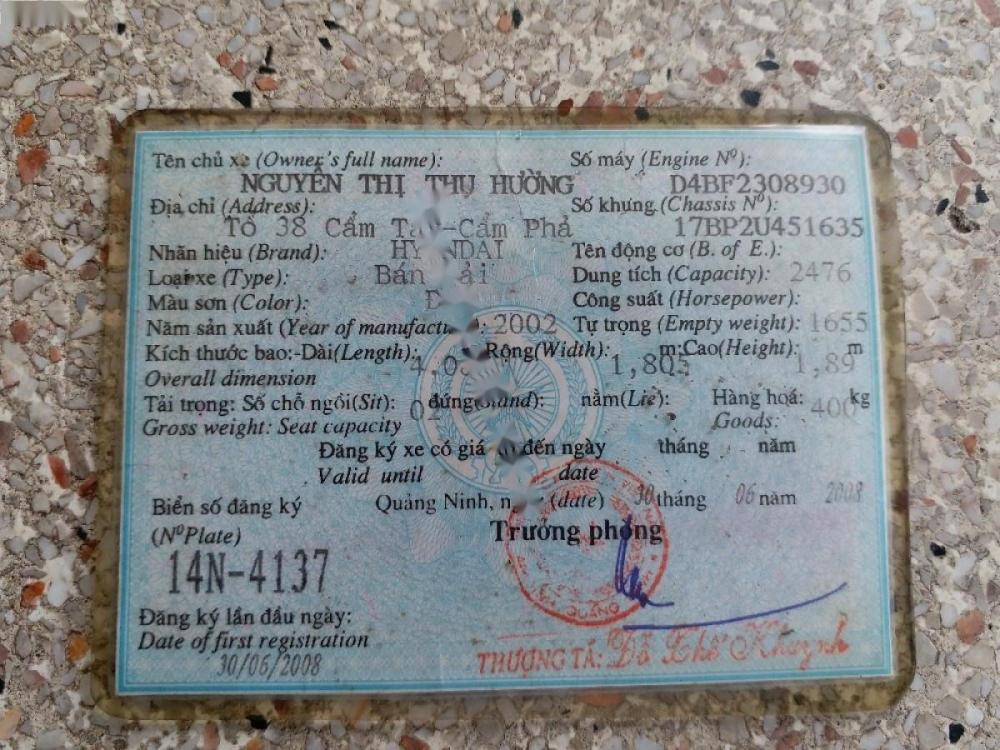 Tên chủ xe (Owner's full name): Số máy (Engine Nº):
NGUYỄN THỊ THU HƯỜNG D4BF2308930
Địa chỉ (Address): Số khung (Chassis Nº):
Tổ 38 Cẩm Tây-Cẩm Phả 17BP2U451635
Nhãn hiệu (Brand): HYUNDAI Tên động cơ (B. of E.):
Loại xe (Type): Bán tải Dung tích (Capacity): 2476
Màu sơn (Color): Công suất (Horsepower):
Năm sản xuất (Year of manufacture): 2002 Tự trọng (Empty weight): 1655
Kích thước bao:-Dài(Length): Rộng(Width): 1,805 m;Cao(Height): 1,89 m
Overall dimension
Tải trọng: Số chỗ ngồi(Sit): đứng(stand): nằm(Lie): Hàng hoá: 400 kg
Gross weight: Seat capacity Goods:
Đăng ký xe có giá trị đến ngày tháng năm
Valid until date
Biển số đăng ký Quảng Ninh, (date) 30 tháng 06 năm 2008
(NºPlate) Trưởng phòng
14N-4137
Đăng ký lần đầu ngày:
Date of first registration
30/06/2008 THƯỢNG TÁ: Đỗ Khuynh